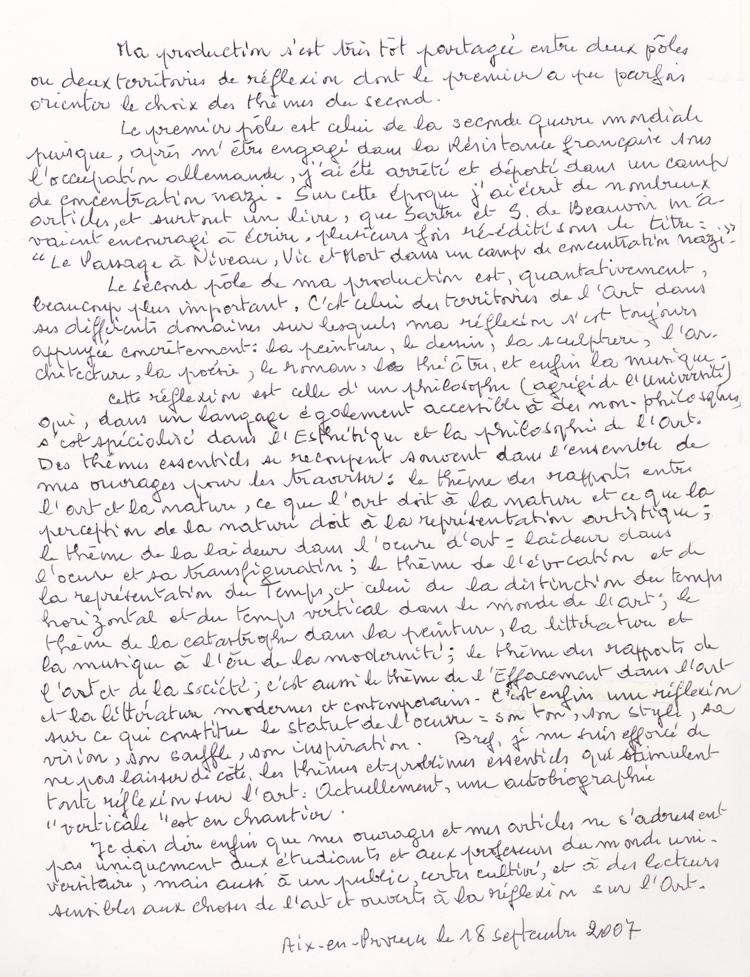 Ma production s'est très tôt partagée entre deux pôles
ou deux territoires de réflexion dont le premier a pu parfois
orienter le choix des thèmes du second.
Le premier pôle est celui de la seconde guerre mondiale
puisque, après m'être engagé dans la Résistance française sous
l'occupation allemande, j'ai été arrêté et déporté dans un camp
de concentration nazi. Sur cette époque j'ai écrit de nombreux
articles, et surtout un livre, que Sartre et S. de Beauvoir m'a-
vaient encouragé à écrire, plusieurs fois réédité sous le titre :
"Le Passage à Niveau, Vie et Mort dans un camp de concentration nazi."
Le second pôle de ma production est, quantativement,
beaucoup plus important. C'est celui des territoires de l'Art dans
ses différents domaines sur lesquels ma réflexion s'est toujours
appuyée concrètement : la peinture, le dessin, la sculpture, l'ar-
chitecture, la poésie, le roman, le théâtre, et enfin la musique.
Cette réflexion est celle d'un philosophe (agrégé de l'Université)
qui, dans un langage également accessible à des non-philosophes,
s'est spécialisé dans l'Esthétique et la philosophie de l'Art.
Des thèmes essentiels se recoupent souvent dans l'ensemble de
mes ouvrages pour les traverser : le thème des rapports entre
l'art et la nature, ce que l'art doit à la nature et ce que la
perception de la nature doit à la représentation artistique ;
le thème de la laideur dans l'œuvre d'art = laideur dans
l'œuvre et sa transfiguration ; le thème de l'évocation et de
la représentation du Temps, et celui de la distinction du temps
horizontal et du temps vertical dans le monde de l'art ; le
thème de la catastrophe dans la peinture, la littérature et
la musique à l'ère de la modernité ; le thème des rapports de
l'art et de la société ; c'est aussi le thème de l'Effacement dans l'art
et la littérature modernes et contemporains. C'est enfin une réflexion
sur ce qui constitue le statut de l'œuvre = son ton, son style, sa
vision, son souffle, son inspiration. Bref, je me suis efforcé de
ne pas laisser de côté, les thèmes et problèmes essentiels qui stimulent
toute réflexion sur l'art. Actuellement, une autobiographie
"verticale" est en chantier.
Je dois dire enfin que mes ouvrages et mes articles ne s'adressent
pas uniquement aux étudiants et aux professeurs du monde uni-
versitaire, mais aussi à un public, certes cultivé, et à des lecteurs
sensibles aux choses de l'art et ouverts à la réflexion sur l'Art.
Aix-en-Provence le 18 septembre 2007